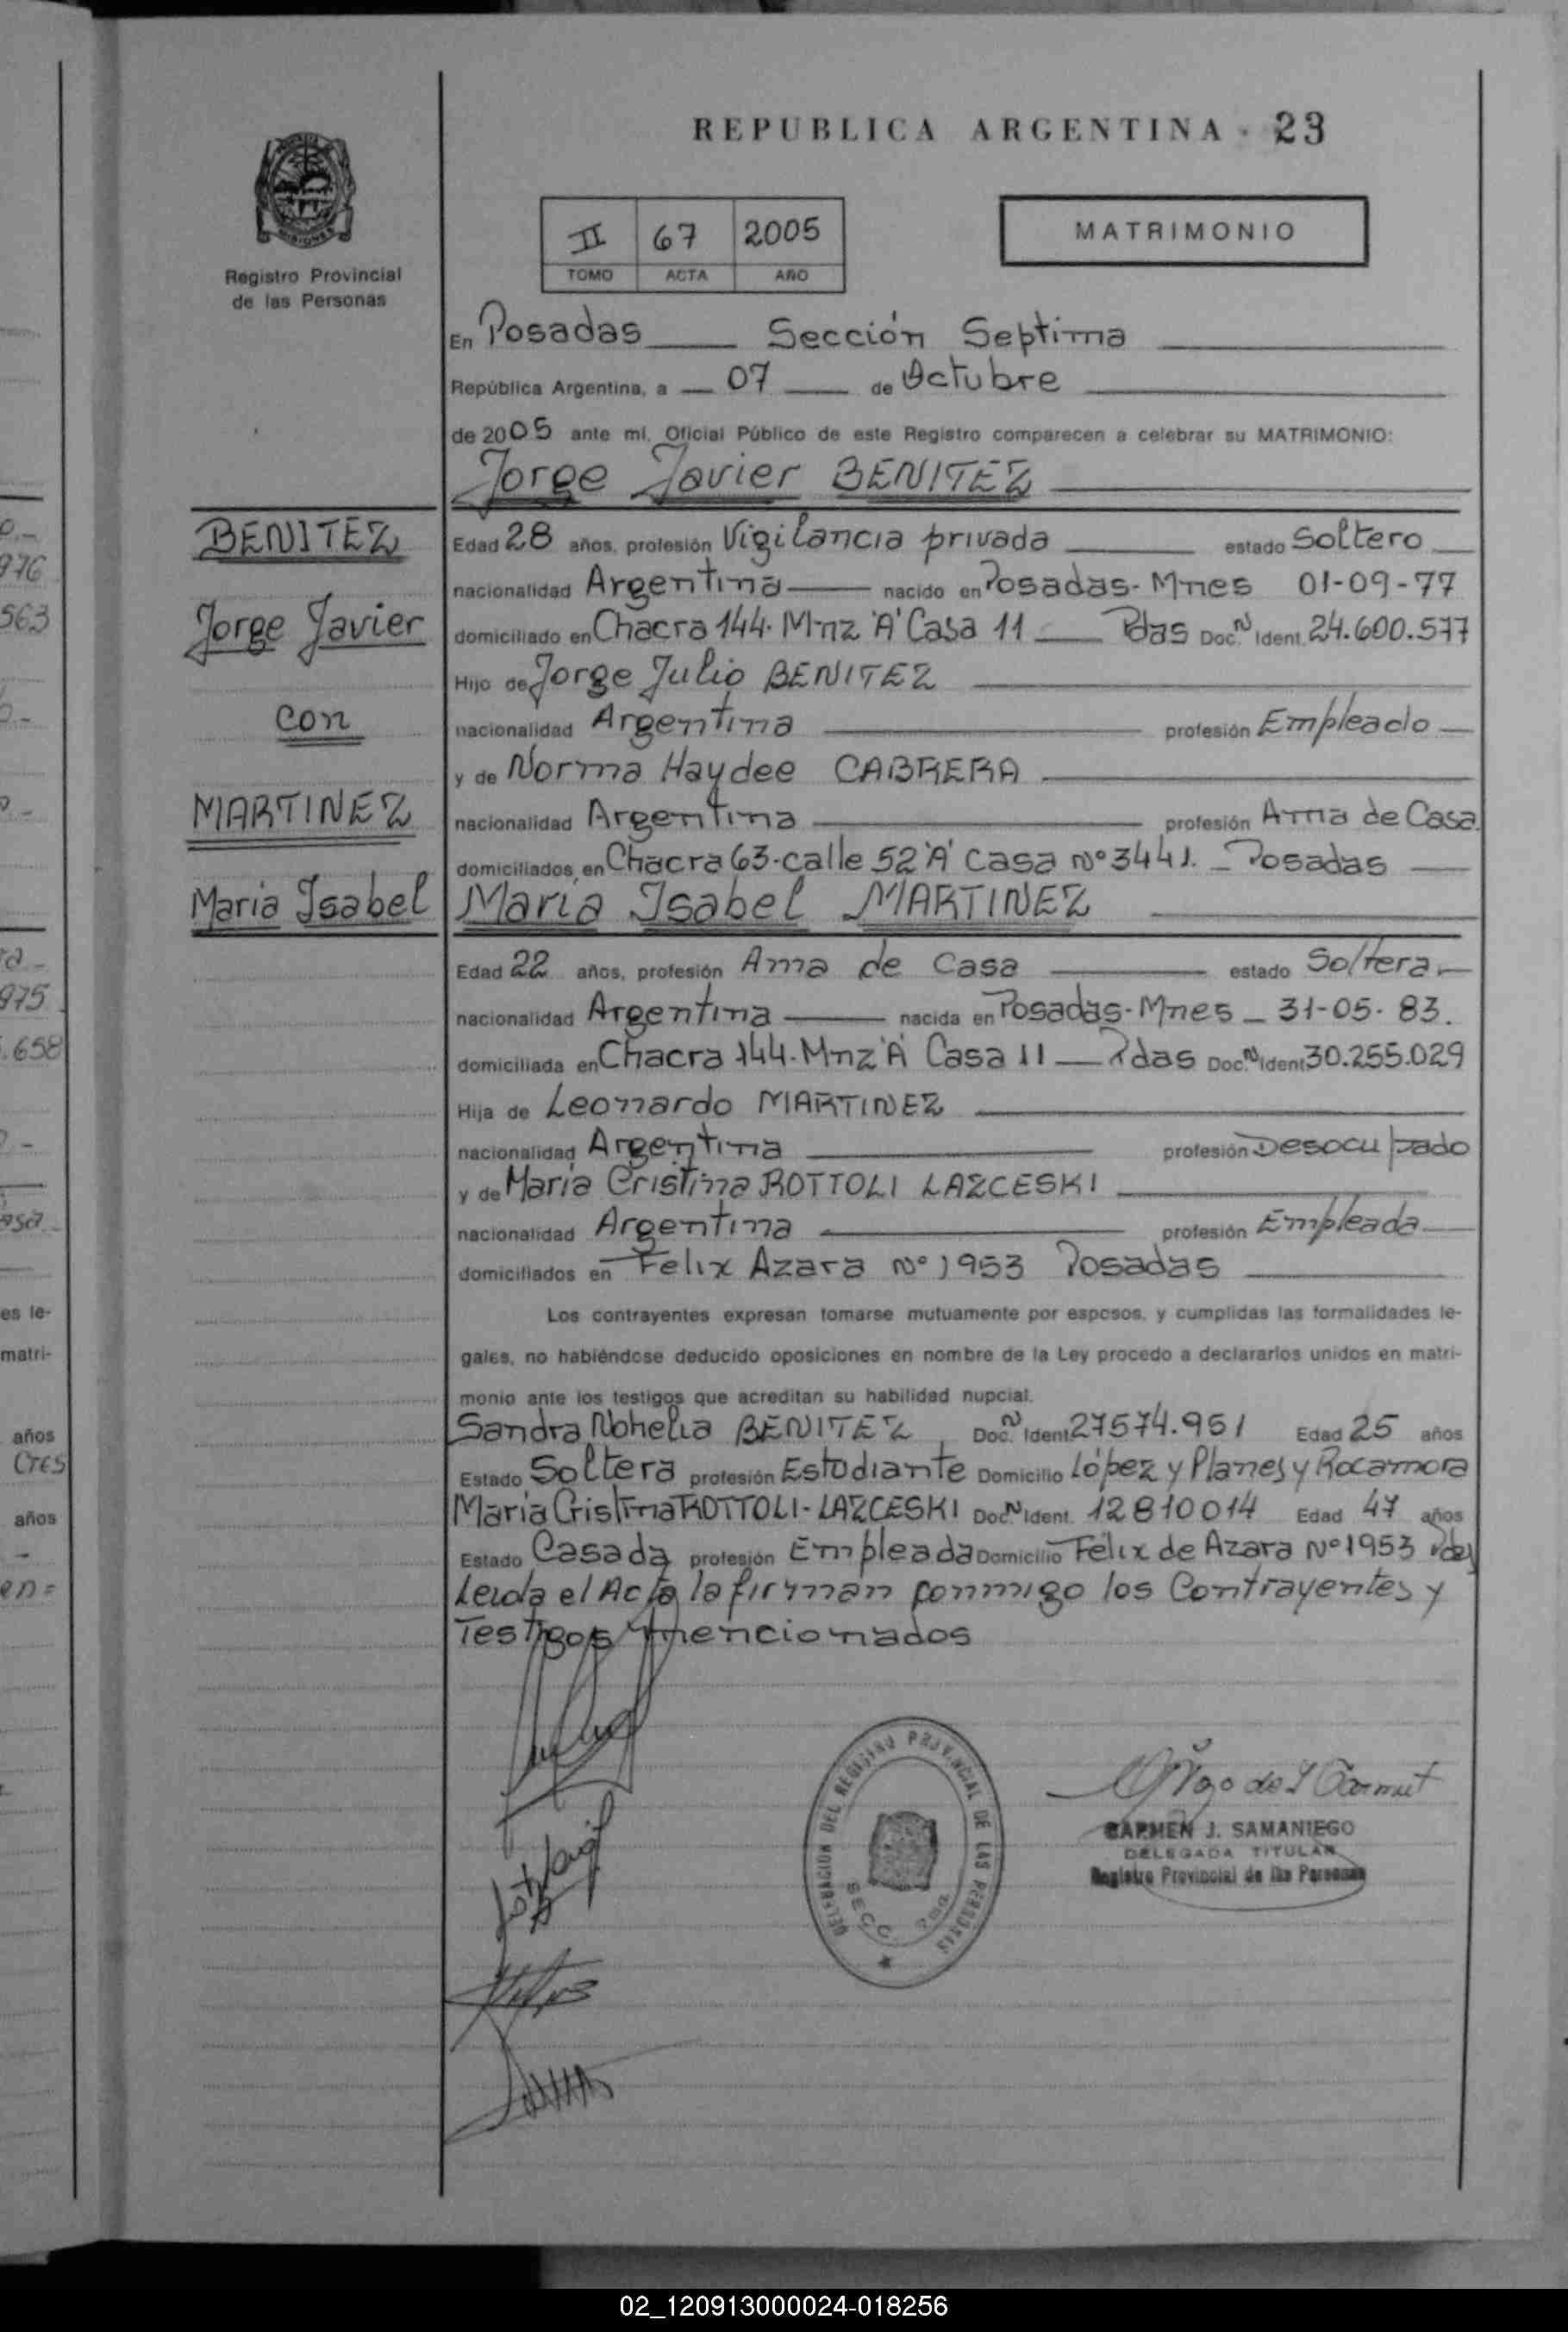 REPUBLICA ARGENTINA 23
MISIONES
Registro Provincial
de las Personas
II 67 2005
TOMO ACTA AÑO
MATRIMONIO
En Posadas Sección Septima
República Argentina, a 07 de Octubre
de 2005 ante mi, Oficial Público de este Registro comparecen a celebrar su MATRIMONIO:
Jorge Javier BENITEZ
BENITEZ
Jorge Javier
con
MARTINEZ
Maria Isabel
Edad 28 años, profesión Vigilancia privada estado Soltero
nacionalidad Argentina nacido en Posadas-Mnes 01-09-77
domiciliado en Chacra 144. Mnz "A" Casa 11 Pdas Doc. N Ident. 24.600.577
Hijo de Jorge Julio BENITEZ
nacionalidad Argentina profesión Empleado
y de Norma Haydee CABRERA
nacionalidad Argentina profesión Ama de Casa
domiciliados en Chacra 63-calle 52 "A" casa Nº 3441. Posadas
María Isabel MARTINEZ
Edad 22 años, profesión Ama de Casa estado Soltera
nacionalidad Argentina nacida en Posadas-Mnes 31-05-83.
domiciliada en Chacra 144. Mnz "A" Casa 11 Pdas Doc. N Ident 30.255.029
Hija de Leonardo MARTINEZ
nacionalidad Argentina profesión Desocupado
y de María Cristina ROTTOLI LAZCESKI
nacionalidad Argentina profesión Empleada
domiciliados en Felix Azara Nº 1953 Posadas
Los contrayentes expresan tomarse mutuamente por esposos, y cumplidas las formalidades le-
gales, no habiéndose deducido oposiciones en nombre de la Ley procedo a declararlos unidos en matri-
monio ante los testigos que acreditan su habilidad nupcial.
Sandra Nohelia BENITEZ Doc. N Ident 27574.951 Edad 25 años
Estado Soltera profesión Estudiante Domicilio López y Planes y Rocamora
María Cristina ROTTOLI-LAZCESKI Doc. N Ident. 12810014 Edad 47 años
Estado Casada profesión Empleada Domicilio Félix de Azara Nº 1953 Pdas
Leida el Acta la firman conmigo los Contrayentes y
Testigos mencionados
DELEGACION DEL REGISTRO PROVINCIAL DE LAS PERSONAS
SECC. 7ma
CARMEN J. SAMANIEGO
DELEGADA TITULAR
Registro Provincial de las Personas
976
563
975
.658
es le-
matri-
años
años
02_120913000024-018256